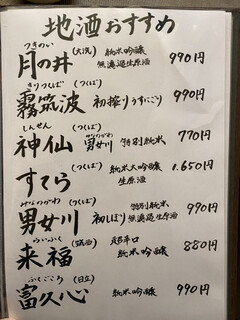 地酒おすすめ
つきのい
月の井 (大洗) 純米吟醸 無濾過生原酒 990円
きりつくば
霧筑波 (つくば) 初搾りうすにごり 990円
しんせん
神仙 (つくば) 男女川 特別純米 770円
すてら (つくば) 純米大吟醸 生原酒 1.650円
みなのがわ
男女川 (つくば) 初しぼり 特別純米 無濾過生原酒 990円
らいふく
来福 (筑西) 超辛口 純米吟醸 880円
ふくごころ
富久心 (日立) 純米吟醸 990円